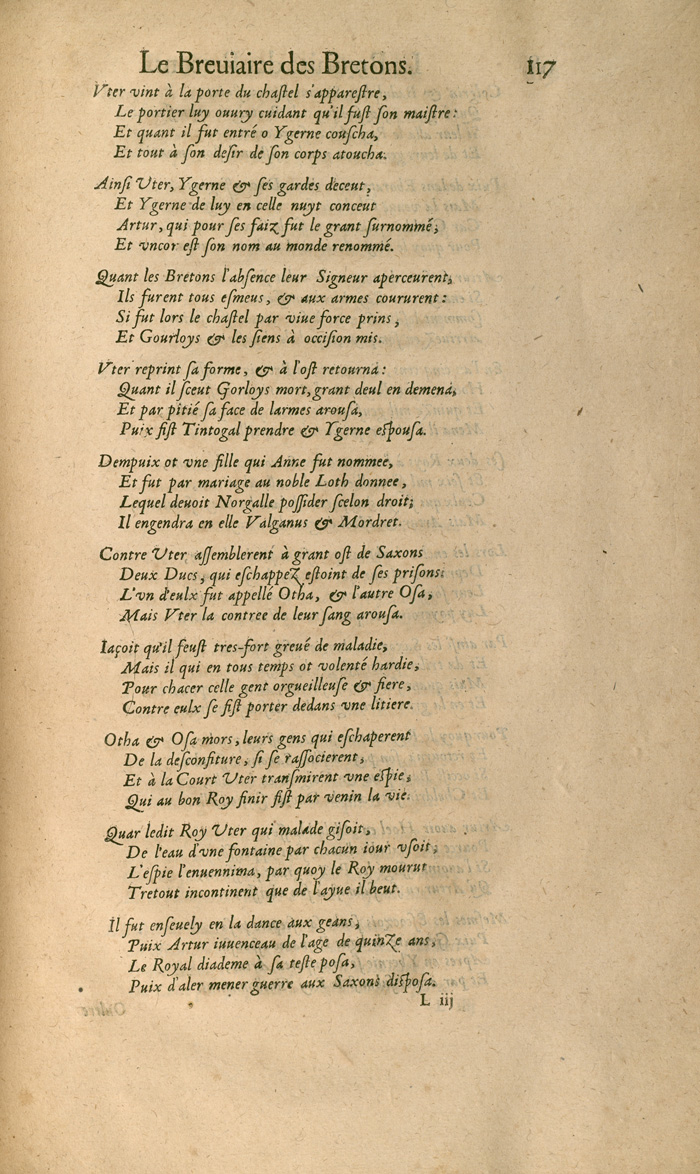 Le Breuiaire des Bretons. 117
Vter vint à la porte du chaſtel s'appareſtre,
Le portier luy ouury cuidant qu'il fuſt ſon maiſtre:
Et quant il fut entré o Ygerne couſcha,
Et tout à ſon deſir de ſon corps atoucha.
Ainſi Uter, Ygerne & ſes gardes deceut,
Et Ygerne de luy en celle nuyt conceut
Artur, qui pour ſes faiz fut le grant ſurnommé,
Et vncor eſt ſon nom au monde renommé.
Quant les Bretons l'abſence leur Signeur aperceurent,
Ils furent tous eſmeus, & aux armes coururent:
Si fut lors le chaſtel par viue force prins,
Et Gourloys & les ſiens à occiſion mis.
Vter reprint ſa forme, & à l'oſt retourna:
Quant il ſceut Gorloys mort, grant deul en demena,
Et par pitié ſa face de larmes arouſa,
Puix fiſt Tintogal prendre & Ygerne eſpouſa.
Dempuix ot vne fille qui Anne fut nommee,
Et fut par mariage au noble Loth donnee,
Lequel deuoit Norgalle poſſider ſcelon droit;
Il engendra en elle Valganus & Mordret.
Contre Uter aſſemblerent à grant oſt de Saxons
Deux Ducs, qui eſchappez eſtoint de ſes priſons:
L'vn d'eulx fut appellé Otha, & l'autre Oſa,
Mais Vter la contree de leur ſang arouſa.
Iaçoit qu'il feuſt tres-fort greué de maladie,
Mais il qui en tous temps ot volenté hardie,
Pour chacer celle gent orgueilleuſe & fiere,
Contre eulx ſe fiſt porter dedans vne litiere.
Otha & Oſa mors, leurs gens qui eſchaperent
De la deſconfiture, ſi ſe raſſocierent,
Et à la Court Uter tranſmirent vne eſpie,
Qui au bon Roy finir fiſt par venin la vie.
Quar ledit Roy Uter qui malade giſoit,
De l'eau d'vne fontaine par chacun iour vſoit;
L'eſpie l'enuennima, par quoy le Roy mourut
Tretout incontinent que de l'ayue il beut.
Il fut enſeuely en la dance aux geans,
Puix Artur iuuenceau de l'age de quinze ans,
Le Royal diademe à ſa teſte poſa,
Puix d'aler mener guerre aux Saxons diſpoſa.
L iij